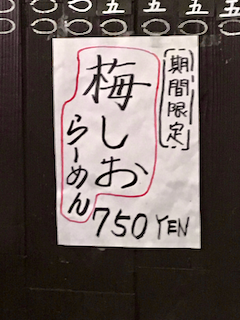 期間限定
梅しお
らーめん
750 YEN